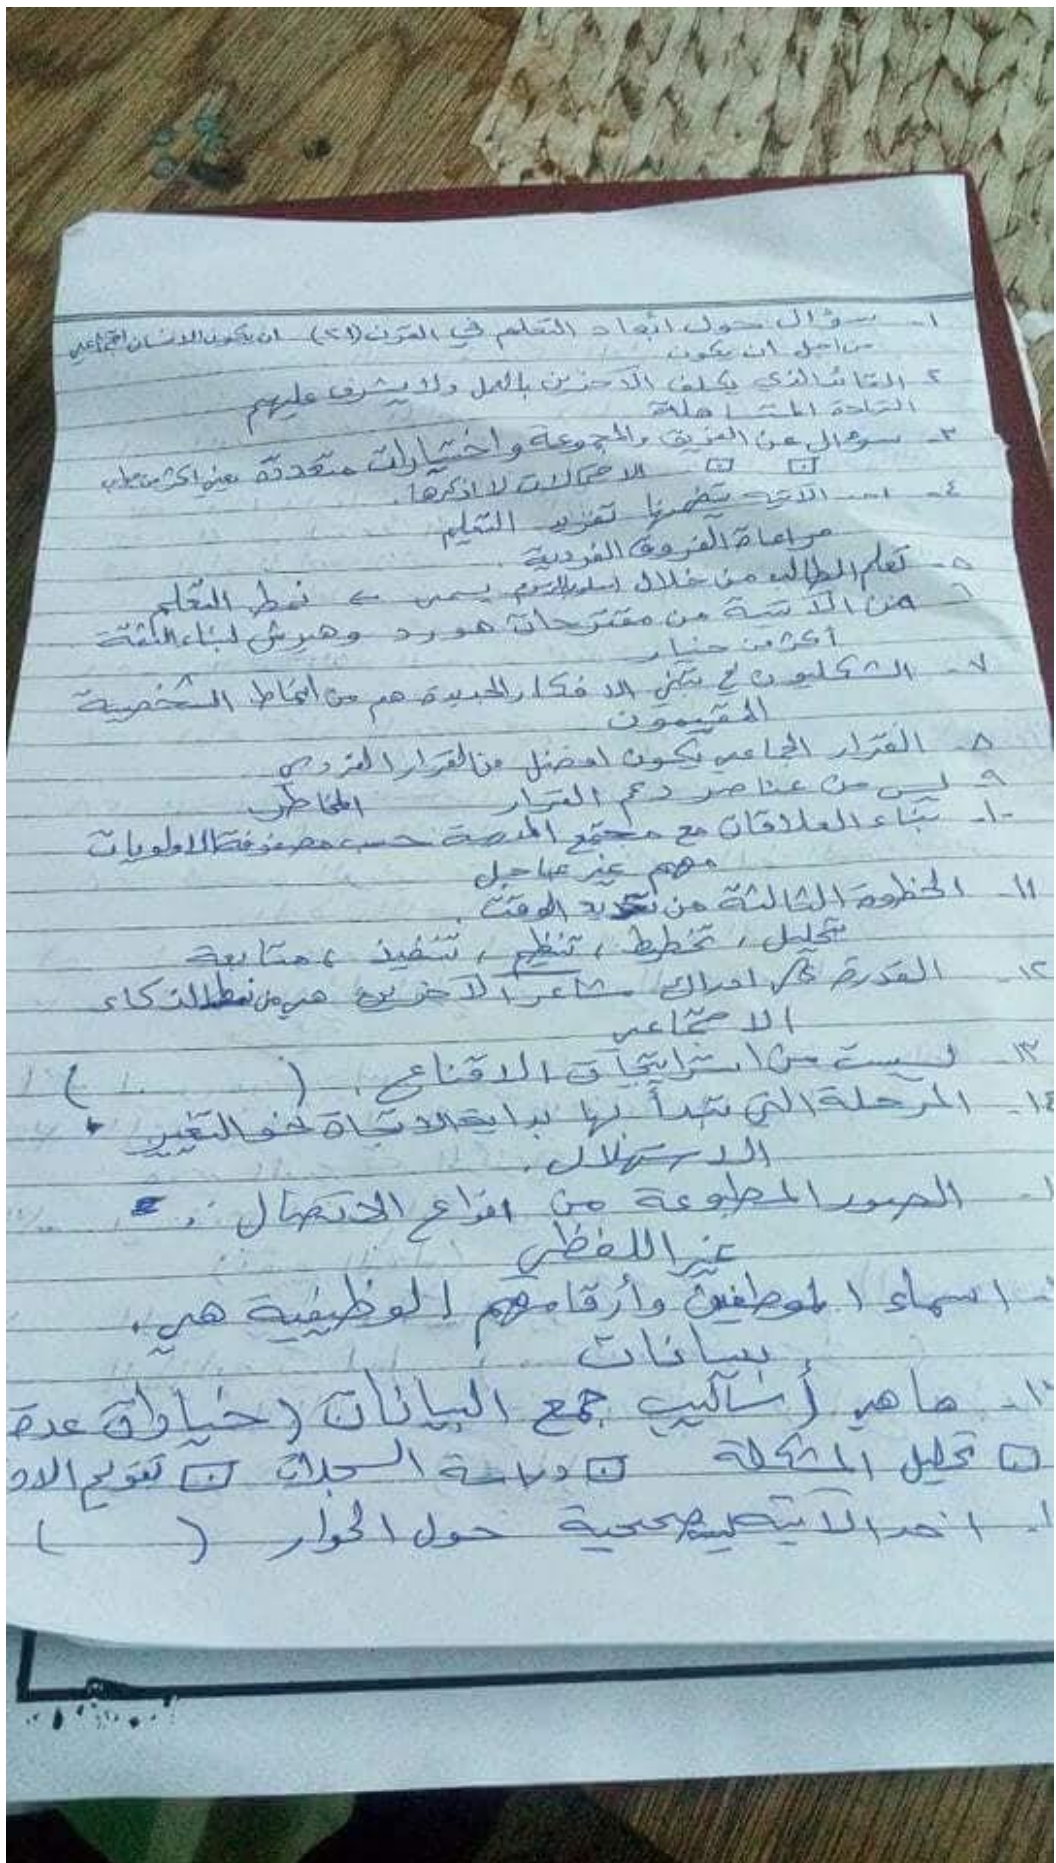 ١- سؤال حول ابعاد التعلم في القرن (٢١) ان يكون الانسان اجتماعي
من اجل ان يكون
٢- القائد الذي يكلف الآخرين بالعمل ولا يشرف عليهم
القادة المتساهلة
٣- سؤال عن الفريق والمجموعة واختيارات متعددة يعني اكثر من جواب
الاحتمالات لا اذكرها.
٤- احد الآتية يتضمنها تفريد التعليم
مراعاة الفروق الفردية.
٥- تعلم الطالب من خلال يسمى ← نمط التعلم
٦- من الآتية من مقترحات هورد وهيرش لبناء الثقة
أكثر من خيار
٧- الشكليون في تبني الافكار الجديدة هم من انماط الشخصية
المقيمون
٨- القرار الجماعي يكون افضل من القرار الفردي
٩- ليس من عناصر دعم القرار المخاطر
١٠- بناء العلاقات مع مجتمع المدرسة حسب مصفوفة الاولويات
مهم غير عاجل
١١- الخطوة الثالثة من الوقت.
تحليل، تخطيط، تنظيم، تنفيذ، متابعة
١٢- القدرة على ادراك مشاعر الآخرين هي من نمط الذكاء
الاجتماعي
١٣- ليست من استراتيجيات الاقناع. ( )
١٤- المرحلة التي تبدأ بها بداية الاتجاة نحو التغيير
الاستهلال.
١- الصور المطبوعة من انواع الاتصال.
غير اللفظي
- اسماء الموظفين وأرقامهم الوظيفية هي.
بيانات
١٧- ماهي أساليب جمع البيانات (خيارات عدة
تحليل المشكلة دراسة السجلات تقويم الاد
١- احد الآتية ليست صحيحة حول الحوار ( )